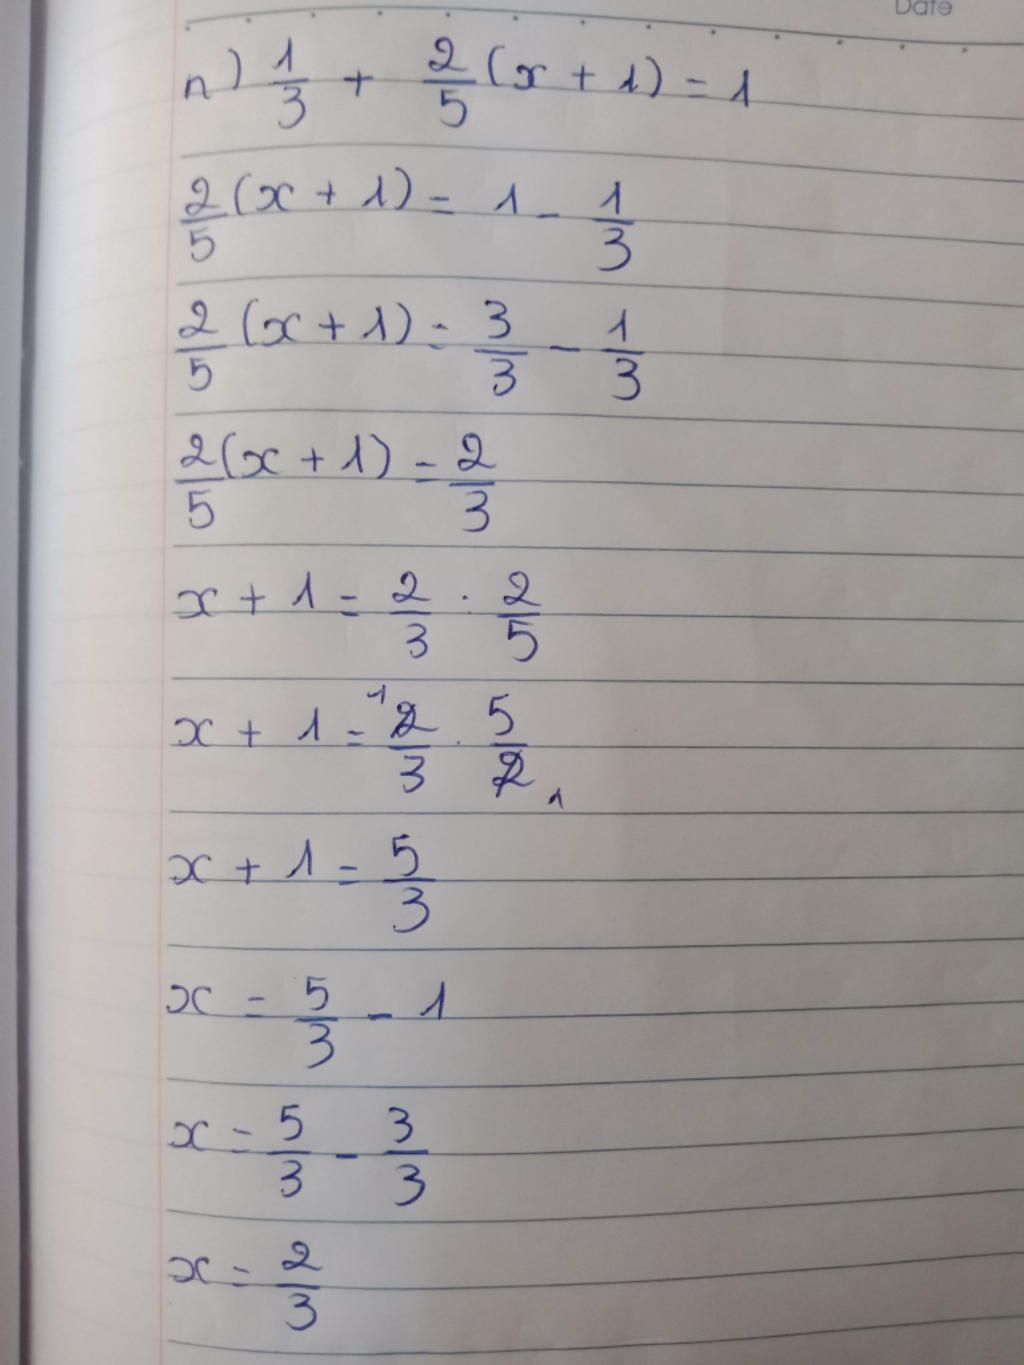 Date
n) 1/3 + 2/5 (x + 1) = 1
2/5 (x + 1) = 1 - 1/3
2/5 (x + 1) = 3/3 - 1/3
2/5 (x + 1) = 2/3
x + 1 = 2/3 : 2/5
x + 1 = ¹2/3 . 5/2₁
x + 1 = 5/3
x = 5/3 - 1
x = 5/3 - 3/3
x = 2/3